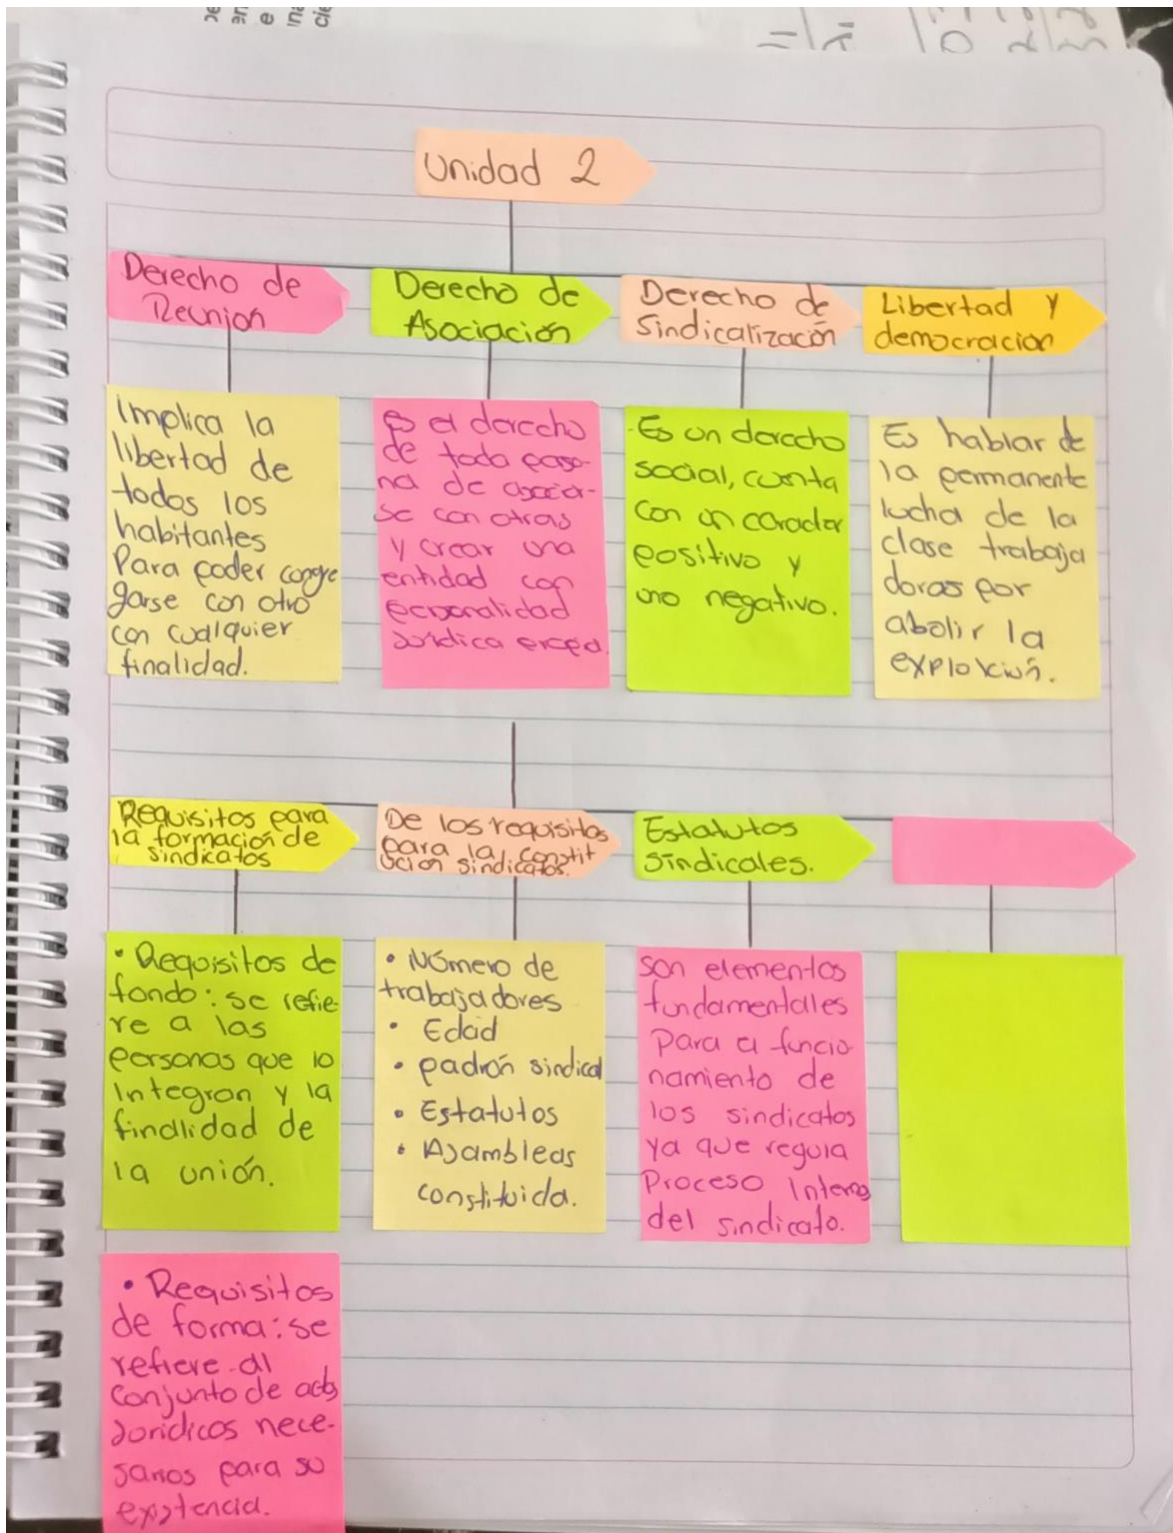 Unidad 2
Derecho de
Reunion
Derecho de
Asociación
Derecho de
Sindicalización
Libertad y
democracion
Implica la
libertad de
todos los
habitantes
Para poder congre
garse con otro
con cualquier
finalidad.
es el derecho
de toda perso-
na de asociar-
se con otras
y crear una
entidad con
personalidad
Jurídica
Es un derecho
social, cuenta
con un caracter
positivo y
uno negativo.
Es hablar de
la permanente
lucha de la
clase trabaja
doras por
abolir la
Requisitos para
la formación de
sindicatos
De los requisitos
para la constit
ucion sindicatos.
Estatutos
Sindicales.
• Requisitos de
fondo: se refie
re a las
personas que lo
Integran y la
finalidad de
la unión.
• Número de
trabajadores
• Edad
• padrón sindical
• Estatutos
• Asambleas
constituida.
son elementos
fundamentales
Para el funcio
namiento de
los sindicatos
ya que regula
Proceso Interno
del sindicato.
• Requisitos
de forma: se
refiere al
conjunto de actos
Jurídicos nece-
sarios para su
existencia.